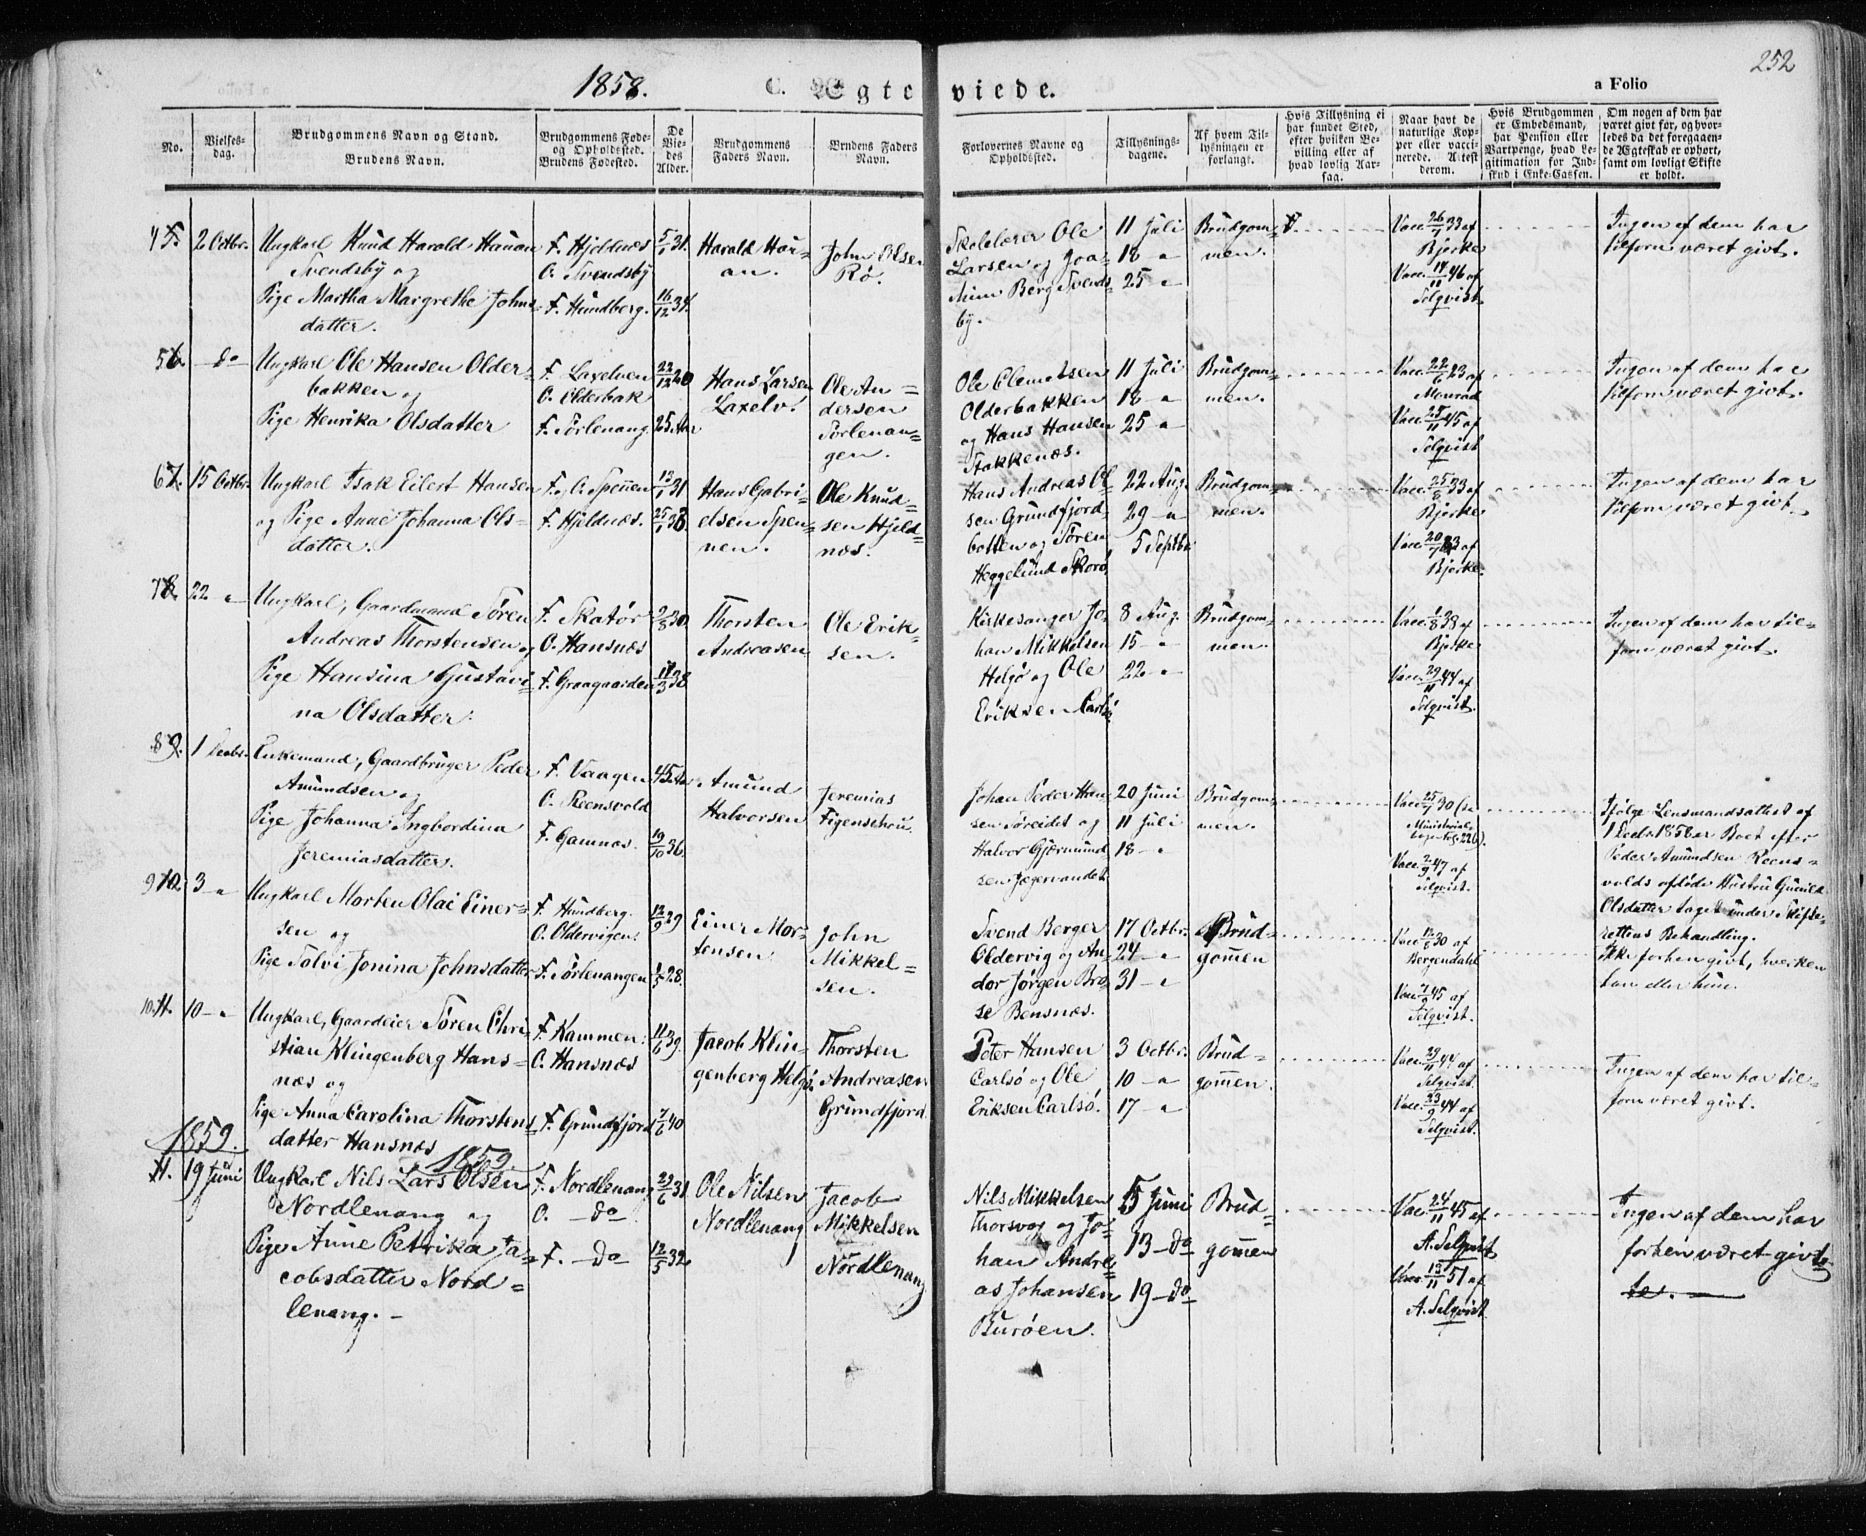 1858.
C. Ægteviede.
a Folio
252
No.
Vielses-
dag.
Brudgommens Navn og Stand.
Brudens Navn.
Brudgommens Føde-
og Opholdssted.
Brudens Fødested.
De
Vie-
des
Alder.
Brudgommens
Faders Navn.
Brudens Faders
Navn.
Forlovernes Navne og
Opholdssted.
Tillysnings-
dagene.
Af hvem Til-
lysningen er
forlangt.
Hvis Tillysning ei
har fundet Sted,
efter hvilken Be-
villing eller af
hvad lovlig Aar-
sag.
Naar havt de
naturlige Kop-
per eller vacci-
nerede. Attest
derom.
Hvis Brudgommen
er Embedsmand,
har Pension eller
Vartpenge, hvad Le-
gitimation for Ind-
skud i Enke-Cassen.
Om nogen af dem har
været gift før, og hvor-
ledes da det foregaaen-
de Ægteskab er ophørt,
samt om lovligt Skifte
er holdt.
5. 2 Octbr. Ungkarl Knud Harald Hauan
Svendsby og
Pige Martha Margrethe Johns-
datter.
F. Hjeldnæs
O. Svendsby
F. Hundberg.
5/1 31.
16/12 34.
Harald Hau-
an.
John Olsen
Rø.
Skolelærer Ole
Larsen og Joa-
kim Berg Svends-
by.
11 Juli
18 - "
25 - "
Brudgom-
men.
Vacc. 26/7 33 af
Bjerke
Vacc. 14/11 46 af
Selqvist.
Ingen af dem har
tilforn været givt.
56. do Ungkarl Ole Hansen Older-
bakken og
Pige Henrika Olsdatter
F. Laxelven
O. Olderbak
F. Sørlenang.
22/12 20
25 Aar
Hans Larsen
Laxelv.
Ole An-
dersen
Sørlenan-
gen.
Ole Clemetsen
Olderbakken
og Hans Hansen
Stakkenæs.
11 Juli
18 - "
25 - "
Brudgom-
men.
Vacc. 22/6 23 af
Monrad
Vacc. 25/11 45 af
Selqvist
Ingen af dem har
tilforn været givt.
67. 15 Octbr. Ungkarl Isak Eilert Hansen
og Pige Anne Johanna Ols-
datter.
F. O. Spenen
F. Hjeldnæs.
13/1 31
25/1 33.
Hans Gabri-
elsen Spen-
nen.
Ole Knud-
sen Hjeld-
næs.
Hans Andreas Ol-
sen Grundfjord-
botten og Søren
Heggelund Skorø
22 Aug.
29 - "
5 Septbr
Brudgom-
men.
Vacc. 25/8 33 af
Bjerke
Vacc. 20/7 33 af
Bjerke.
Ingen af dem har
tilforn været givt.
78. 22 - " Ungkarl, Gaardmand Søren
Andreas Thorstensen og
Pige Hansina Gustavi-
na Olsdatter.
F. Skatør
O. Hansnæs
F. Graagaarden
2/8 30
17/3 38
Thorsten
Andreasen
Ole Erik-
sen.
Kirkesanger Jo-
han Mikkelsen
Helgø og Ole
Eriksen Carlsø
8 Aug.
15 - "
22 - "
Brudgom-
men.
Vacc. 1/8 38 af
Bjerke
Vacc. 29/11 44 af
Selqvist.
Ingen af dem har til-
forn været givt.
89. 1 Decbr. Enkemand, Gaardbruger Peder
Amundsen og
Pige Johanna Ingbordina
Jeremiasdatter.
F. Vaagen
O. Reensvold
F. Gamnæs.
45 Aar
19/10 36.
Amund
Halvorsen
Jeremias
Figenschou
Johan Peder Han-
sen Søreidet og
Halvor Gjærmund-
sen Jægervandet
20 Juni
11 Juli
18 - "
Brudgom-
men.
Vacc. 25/7 30
Vacc. 2/9 47 af
Selqvist.
Ifølge Lensmandsattest af
1 Decbr 1858 er Boet efter
Peder Amundsen Reens-
volds afdøde Hustru Gunild
Olsdatter taget under Skifte-
rettens Behandling.
910. 3 - " Ungkarl Morten Olai Einer-
sen og
Pige Solvi Jonina Johnsdatter
F. Hundberg.
O. Oldervigen.
F. Sørlenangen
12/9 29
1/5 28.
Einer Mor-
tensen
John
Mikkel-
sen.
Svend Berger
Oldervig og An-
dor Jørgen Bro-
se Bensnæs.
17 Octbr.
24 - "
31 - "
Brud-
gommen
30 af
Bergendahl
Vacc. 7/9 45 af
Selqvist.
Ikke forhen givt, hverken
han eller hun.
10.11. 10 - " Ungkarl, Gaardeier Søren Chri-
stian Klingenberg Hans-
næs og
Pige Anna Carolina Thorstens-
datter Hansnæs
F. Kammen.
O. Hansnæs
F. Grundfjord
11/6 39.
7/6 40
Jacob Klin-
genberg Helgø
Thorsten
Andreasen
Grundfjord.
Peter Hansen
Carlsø og Ole
Eriksen Carlsø.
3 Octbr.
10 - "
17 - "
Brud-
gommen.
Vacc. 29/11 44 af
Selqvist.
Vacc. 23/9 44 af
Selqvist.
Ingen af dem har til-
forn været givt.
1859.
1859.
1. 19 Juni Ungkarl Nils Lars Olsen
Nordlenang og
Pige Anne Petrika Ja-
cobsdatter Nord-
lenang.
F. Nordlenang
O. - do
F. - do
29/6 31.
12/5 32.
Ole Nilsen
Nordlenang
Jacob
Mikkelsen
Nordlenang
Nils Mikkelsen
Thorsvog og Jo-
han Andre-
as Johansen
Burøen.
5 Juni
13 - do
19 - do
Brud-
gommen
Vac. 24/11 45 af
A. Selqvist
Vacc. 13/11 51 af
A. Selqvist
Ingen af dem har
forhen været givt